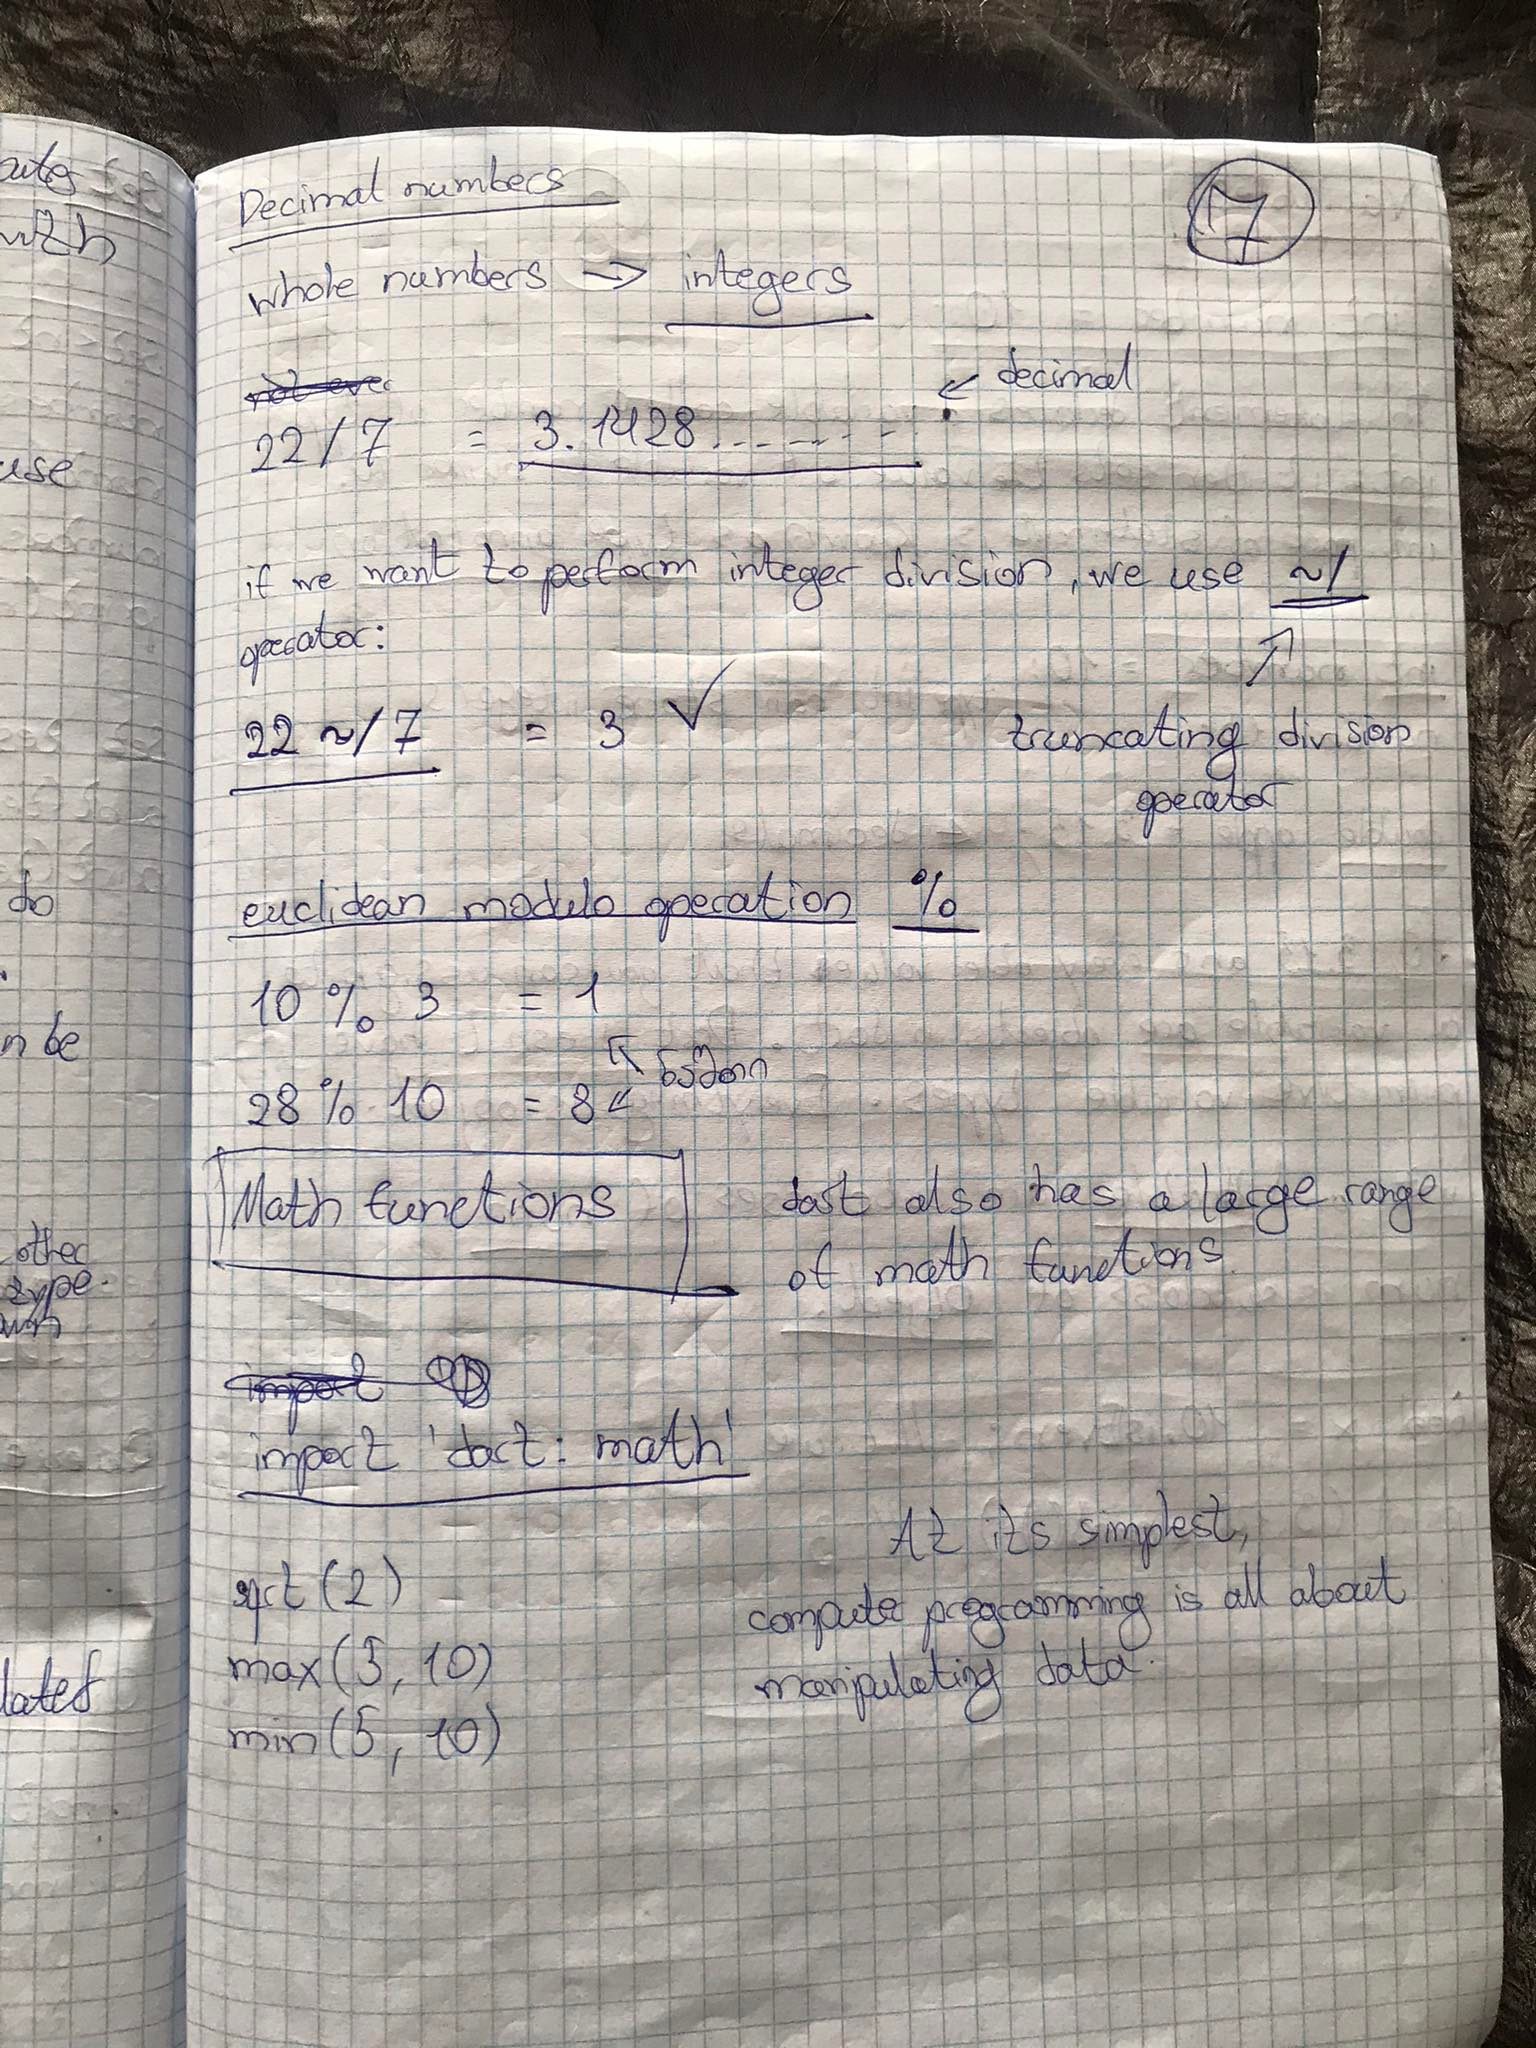 7
Decimal numbers
whole numbers → integers
22/7 = 3.1428.......
↙ decimal
if we want to perform integer division, we use ~/
operator:
22 ~/ 7 = 3 ✓
truncating division
operator
euclidean modulo operation %
10 % 3 = 1
28 % 10 = 8
Math functions
dart also has a large range
of math functions
import
import 'dart: math'
sqrt (2)
max(5, 10)
min (5, 10)
At its simplest,
computer programming is all about
manipulating data.
use
do
n be
other
type.